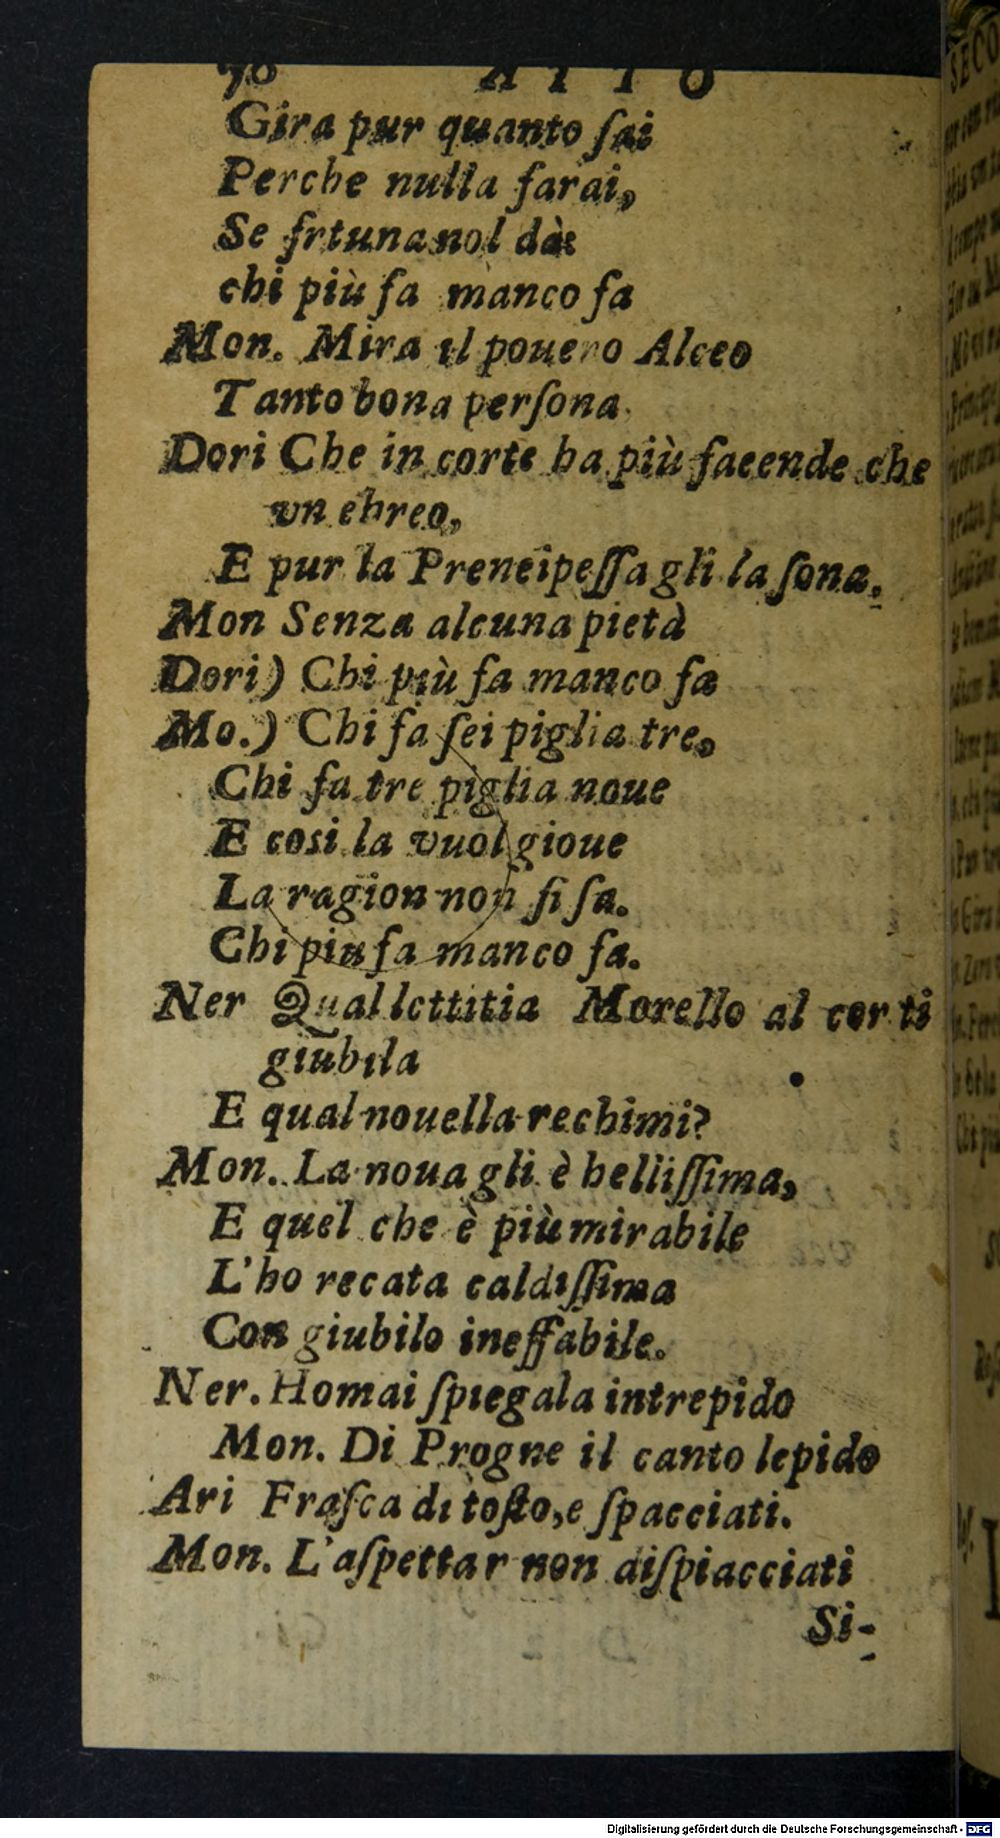 70 ATTO
Gira pur quanto ſai
Perche nulla farai,
Se frtuna nol dà:
chi più fa manco fa
Mon. Mira il pouero Alceo
Tanto bona perſona
Dori Che in corte ha più facende che
vn ebreo,
E pur la Prencipeſſa gli la ſona.
Mon Senza alcuna pietà
Dori) Chi più fa manco fa
Mo.) Chi fa ſei piglia tre,
Chi fa tre piglia noue
E cosi la vuol gioue
La ragion non ſi ſa.
Chi piu fa manco fa.
Ner Qual lettitia Morello al cor ti
giubila
E qual nouella rechimi?
Mon. La noua gli è belliſſima,
E quel che è più mirabile
L'ho recata caldiſſima
Con giubilo ineffabile.
Ner. Homai ſpiegala intrepido
Mon. Di Progne il canto lepido
Ari Fraſca di toſto, e ſpacciati.
Mon. L'aſpettar non diſpiacciati
Si-
Digitalisierung gefördert durch die Deutsche Forschungsgemeinschaft - DFG